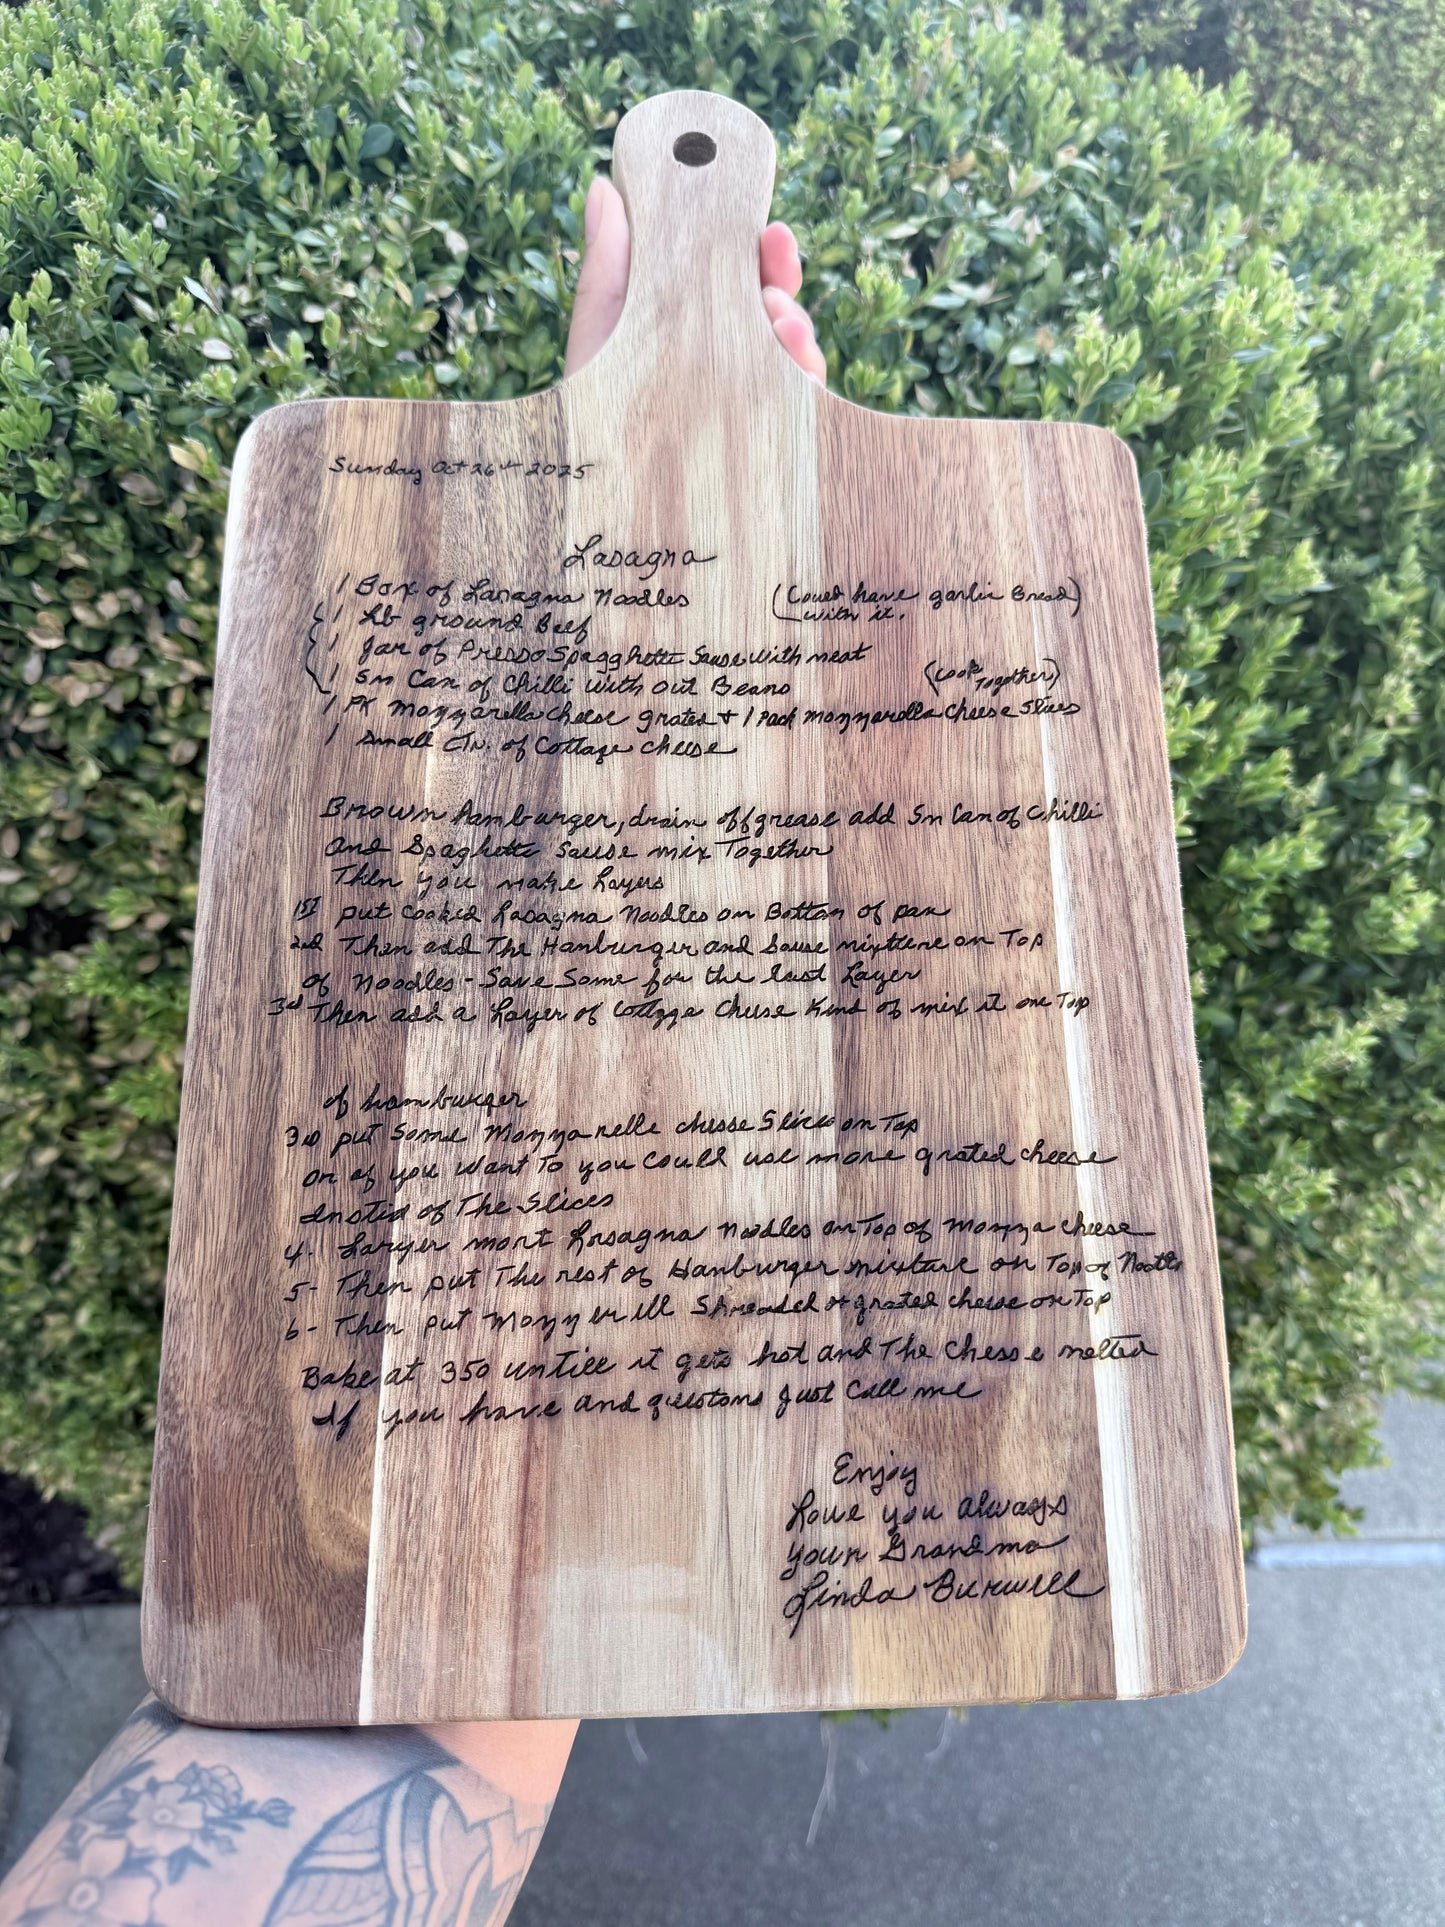 Sunday Oct 26th 2025
Lasagna
1 Box of Lasagna Noodles (Could have garlic Bread)
with it.
1 Lb ground Beef
1 Jar of Presso Spagghetti Sause With meat
1 Sm Can of Chilli with out Beans (Cook Together)
1 PK Mozzarella cheese grated + 1 Pack mozzarolla cheese slices
1 Small CTN. of Cottage cheese
Brown hamburger, drain off grease add Sm Can of chilli
and Spaghetti Sause mix Together
Then you make Layers
1ST put cooked Lasagna Noodles on Bottom of pan
2nd Then add The Hamburger and Sause mixttere on Top
of Noodles - Save Some for the last Layer
3rd Then add a Layer of Cottage Cheese Kind of mix it on Top
of hamburger
3rd put some Mozzarelle cheese Slices on Top
or if you want To you could use more grated cheese
insted of The Slices
4. Laryer mort Lasagna Noodles on Top of Mozza cheese
5- Then put The rest of Hamburger mixture on Top of Noodles
6- Then put Mozzerell Shreaded or grated cheese on Top
Bake at 350 untill it gets hot and The Chesse melted
If you have and questons Just Call me
Enjoy
Love you always
your Grandma
Linda Burwell